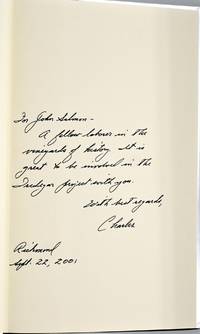 For John Salmon -
A fellow laborer in the
vineyards of history. It is
great to be involved in the
Tredegar project with you.
With best regards,
Charles
Richmond
Sept. 22, 2001